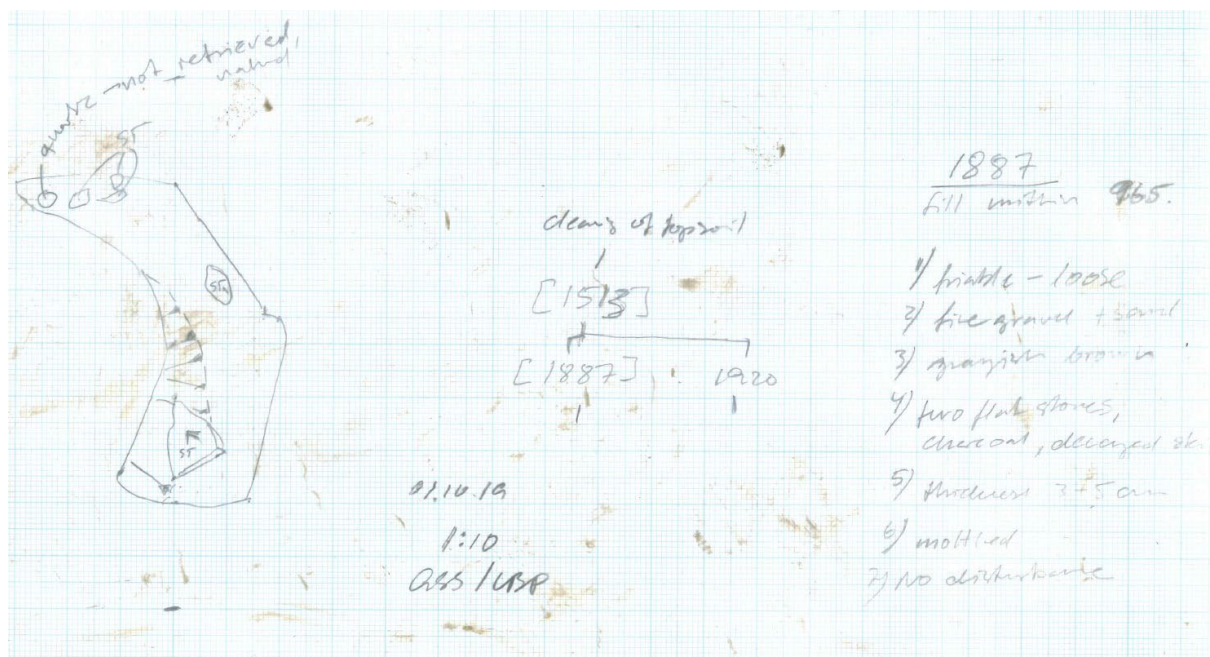 quartz - not retrieved,
natural
ST
ST
ST
cleaning of topsoil
[1513]
[1887] 1920
1:10
1887
fill within 965.
1) friable - loose
2) fine gravel + sand
3) grayish brown
4) two flat stones,
charcoal, decayed
5) thickness 3-5 cm
6) mottled
7) No disturbance